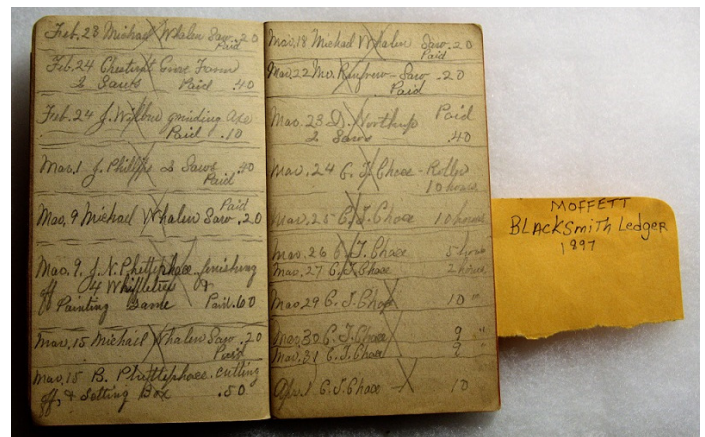 Feb. 23 Michael Whalen Saw .20
Paid
Feb. 24 Chestnut Grove Farm
2 Saws Paid .40
Feb. 24 J. Wilbur grinding Axe
Paid .10
Mar. 1 J. Phillips 2 Saws .40
Paid
Paid
Mar. 9 Michael Whalen Saw .20
Mar. 9. J. N. Phettiphace finishing
off 4 Whiffletrees &
Painting Same Paid .60
Mar. 15 Michael Whalen Saw .20
Paid
Mar. 15 B. Phettiphace. Cutting
off, & Setting Box .50
Mar. 18 Michael Whalen Saw .20
Paid
Mar. 22 Mr. Renfrew - Saw .20
Paid
Mar. 23 D. Northup Paid
2 Saws .40
Mar. 24 C. J. Chace - Roller
10 hours
Mar. 25 C. J. Chace 10 hours
Mar. 26 C. J. Chace 5 hours
Mar. 27 C. J. Chace 2 hours
Mar. 29 C. J. Chace 10 "
Mar. 30 C. J. Chace 9 "
Mar. 31 C. J. Chace "
Apr. 1 C. J. Chace 10
MOFFETT
BLACKSMITH Ledger
1897